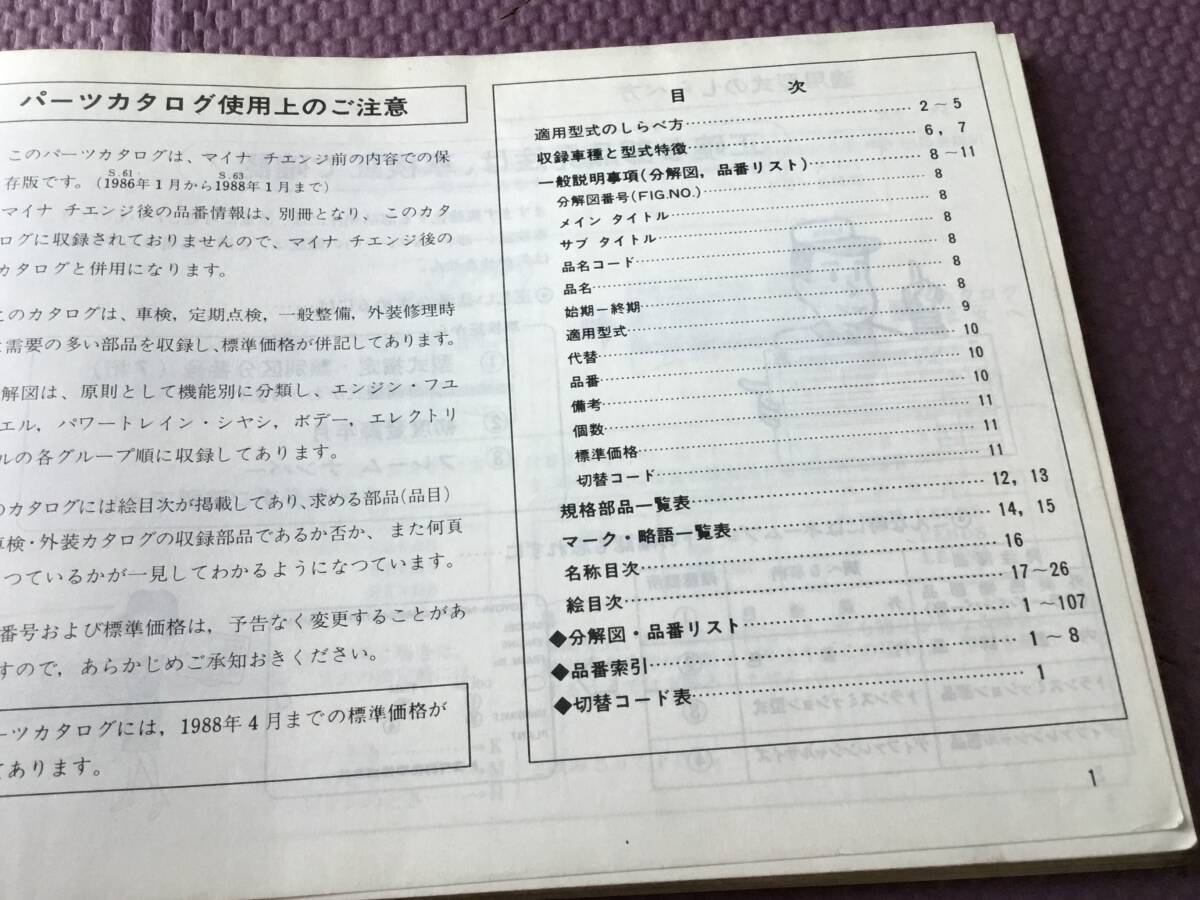 パーツカタログ使用上のご注意
このパーツカタログは、マイナ チエンジ前の内容での保
存版です。(1986年1月から1988年1月まで)
S.61 S.63
マイナ チエンジ後の品番情報は、別冊となり、このカタ
ログに収録されておりませんので、マイナ チエンジ後の
カタログと併用になります。
このカタログは、車検，定期点検，一般整備，外装修理時
需要の多い部品を収録し、標準価格が併記してあります。
解図は、原則として機能別に分類し、エンジン・フユ
エル，パワートレイン・シヤシ，ボデー，エレクトリ
ルの各グループ順に収録してあります。
のカタログには絵目次が掲載してあり、求める部品(品目)
車検・外装カタログの収録部品であるか否か、また何頁
つているかが一見してわかるようになつています。
番号および標準価格は，予告なく変更することがあ
すので，あらかじめご承知おきください。
ーツカタログには，1988年4月までの標準価格が
てあります。
目 次
適用型式のしらべ方 2～5
収録車種と型式特徴 6，7
一般説明事項(分解図，品番リスト) 8～11
分解図番号(FIG.NO.) 8
メイン タイトル 8
サブ タイトル 8
品名コード 8
品名 8
始期－終期 8
適用型式 9
代替 10
品番 10
備考 10
個数 11
標準価格 11
切替コード 11
規格部品一覧表 12，13
マーク・略語一覧表 14，15
名称目次 16
絵目次 17～26
◆分解図・品番リスト 1～107
◆品番索引 1～8
◆切替コード表 1
1